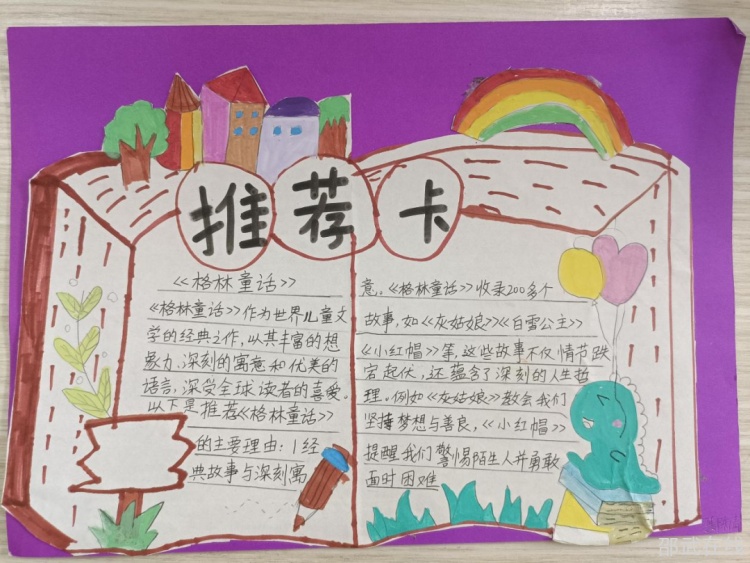 推荐卡
《格林童话》
《格林童话》作为世界儿童文
学的经典之作,以其丰富的想
象力、深刻的寓意和优美的
语言,深受全球读者的喜爱。
以下是推荐《格林童话》
的主要理由:1经
典故事与深刻寓
意。《格林童话》收录200多个
故事,如《灰姑娘》《白雪公主》
《小红帽》等,这些故事不仅情节跌
宕起伏,还蕴含了深刻的人生哲
理。例如《灰姑娘》教会我们
坚持梦想与善良,《小红帽》
提醒我们警惕陌生人并勇敢
面对困难